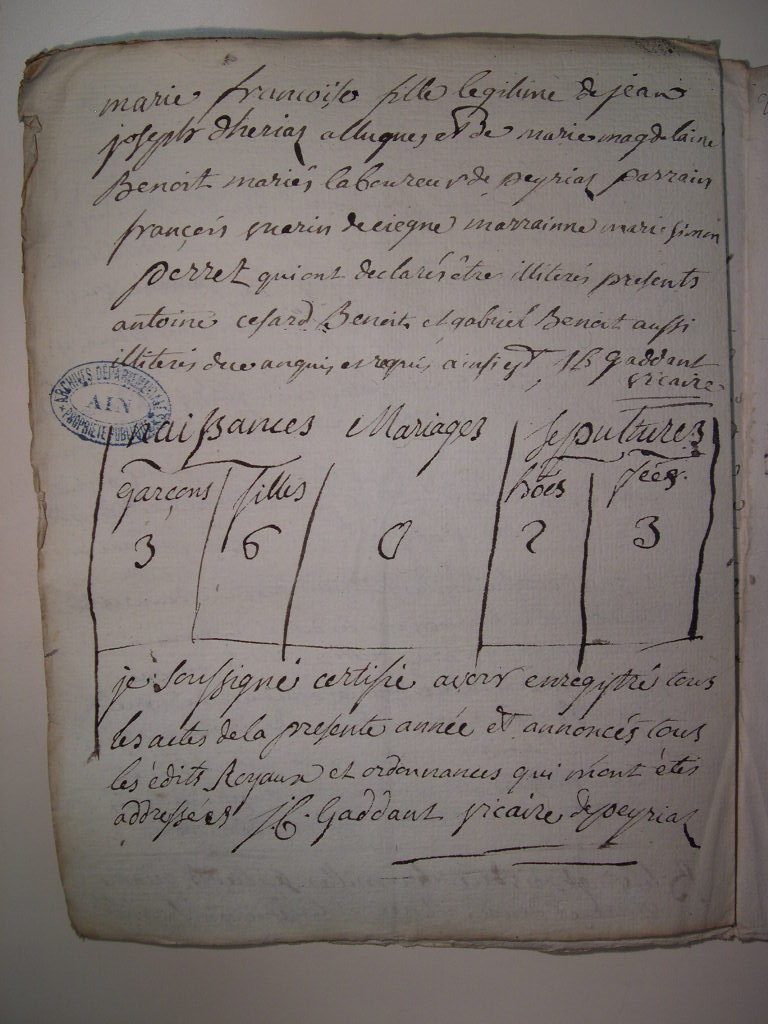 marie françoise fille legitime de jean
joseph dheriaz alluques et De marie magdelaine
Benoit mariés laboureur de peyriaz parrain
françois guerin de ciegne marrainne marie simon
perret qui ont declarés être illiterés presents
antoine cesard Benoit et gabriel Benoit aussi
illiterés de ce enquis et requis ainsi est J B gaddant
vicaire
ARCHIVES DÉPARTEMENTALES
AIN
PROPRIÉTÉ PUBLIQUE
naissances Mariages sepultures
garçons filles hões fées
3 6 0 2 3
je soussigné certifié avoir enregistré tous
les actes de la presente année et annoncés tous
les édits Royaux et ordonnances qui m'ont étés
addressées J B. Gaddant vicaire de peyriaz